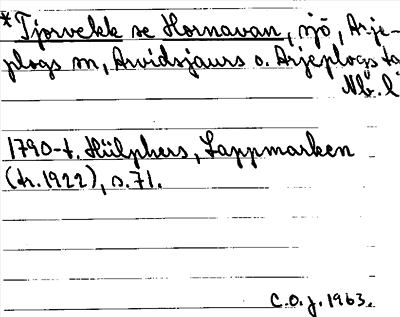 *Tjorvekk se Hornavan, sjö, Arje-
plogs sn, Arvidsjaurs o. Arjeplogs ta
Nb. l
1790-t. Hülphers, Lappmarken
(tr. 1922), s. 71.
C.O.J. 1963.